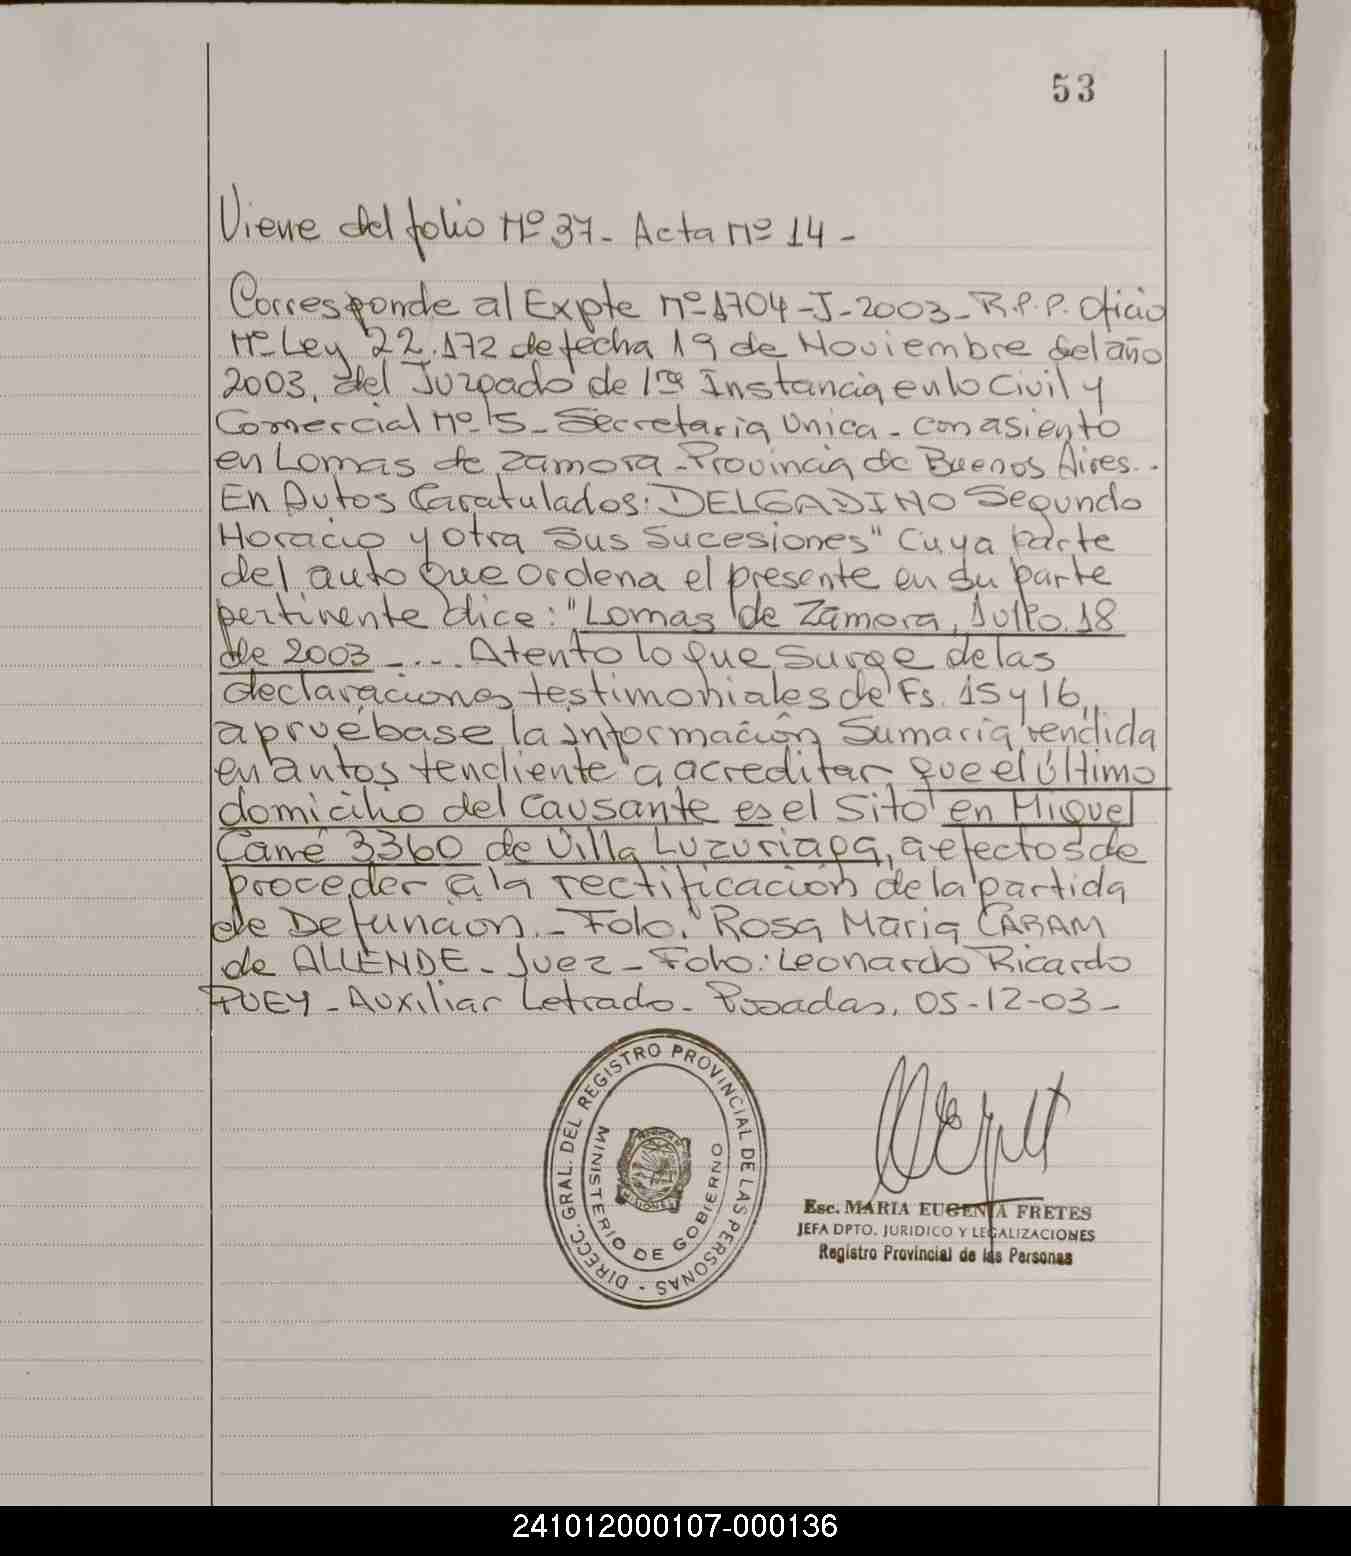 53
Viene del folio Nº 37 - Acta Nº 14 -
Corresponde al Expte Nº 1704 - J - 2003 - R.P.P. Oficio
Nº Ley 22.172 de fecha 19 de Noviembre del año
2003, del Juzgado de 1ra Instancia en lo Civil y
Comercial Nº 5 - Secretaria Unica - con asiento
en Lomas de Zamora - Provincia de Buenos Aires. -
En Autos Caratulados: DELGADINO Segundo
Horacio y otra Sus Sucesiones" Cuya parte
del auto que ordena el presente en su parte
pertinente dice: "Lomas de Zamora, Julio 18
de 2003 - ... - Atento lo que surge de las
declaraciones testimoniales de Fs. 15 y 16,
apruébase la información Sumaria rendida
en autos tendiente a acreditar que el último
domicilio del Causante es el sito en Miguel
Cané 3360 de Villa Luzuriaga, a efectos de
proceder a la rectificación de la partida
de Defunción. - Fdo. Rosa Maria CARAM
de ALLENDE - Juez - Fdo: Leonardo Ricardo
PUEY - Auxiliar Letrado - Posadas, 05-12-03 -
DIRECC. GRAL. DEL REGISTRO PROVINCIAL DE LAS PERSONAS -
MINISTERIO DE GOBIERNO
Esc. MARIA EUGENIA FRETES
JEFA DPTO. JURIDICO Y LEGALIZACIONES
Registro Provincial de las Personas
241012000107-000136